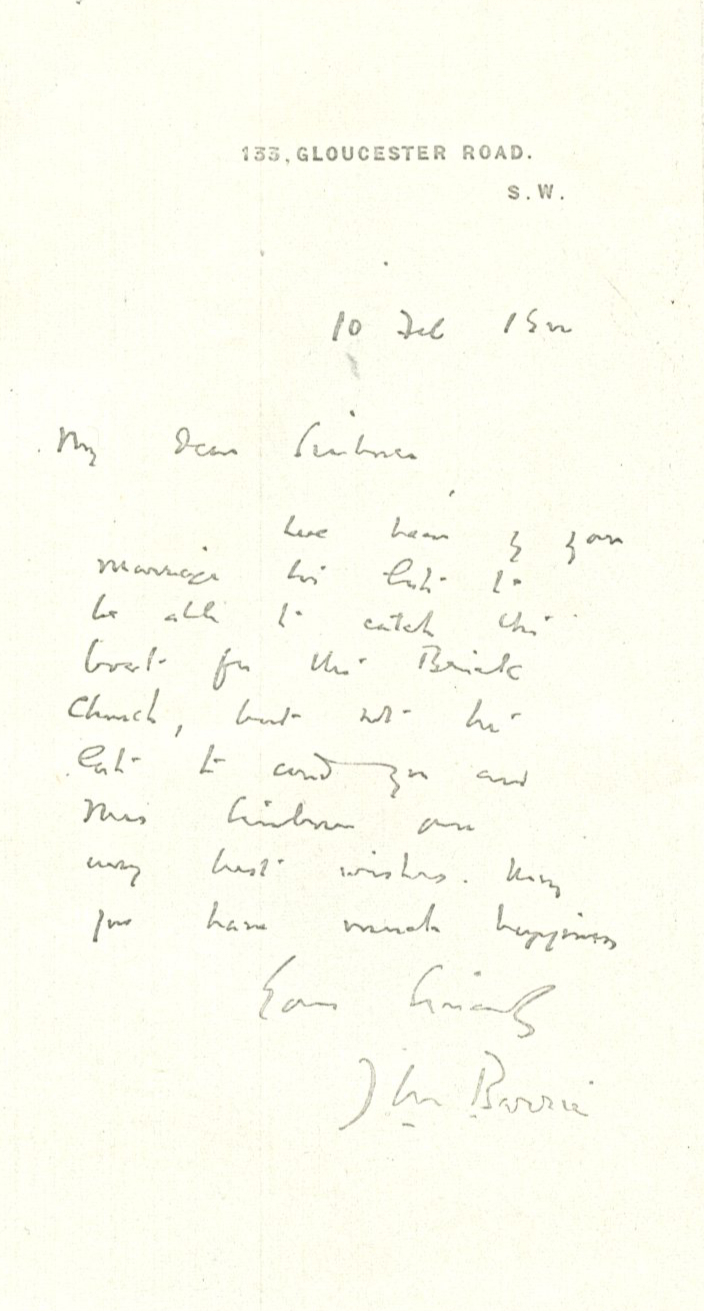 133, GLOUCESTER ROAD.
S.W.
10 Feb
My dear
We hear of your
marriage too late to
be able to catch the
boat for the Brick
Church, but not too
late to send you and
Mrs our
very best wishes. May
you have much happiness
Yours Sincerely
J M Barrie